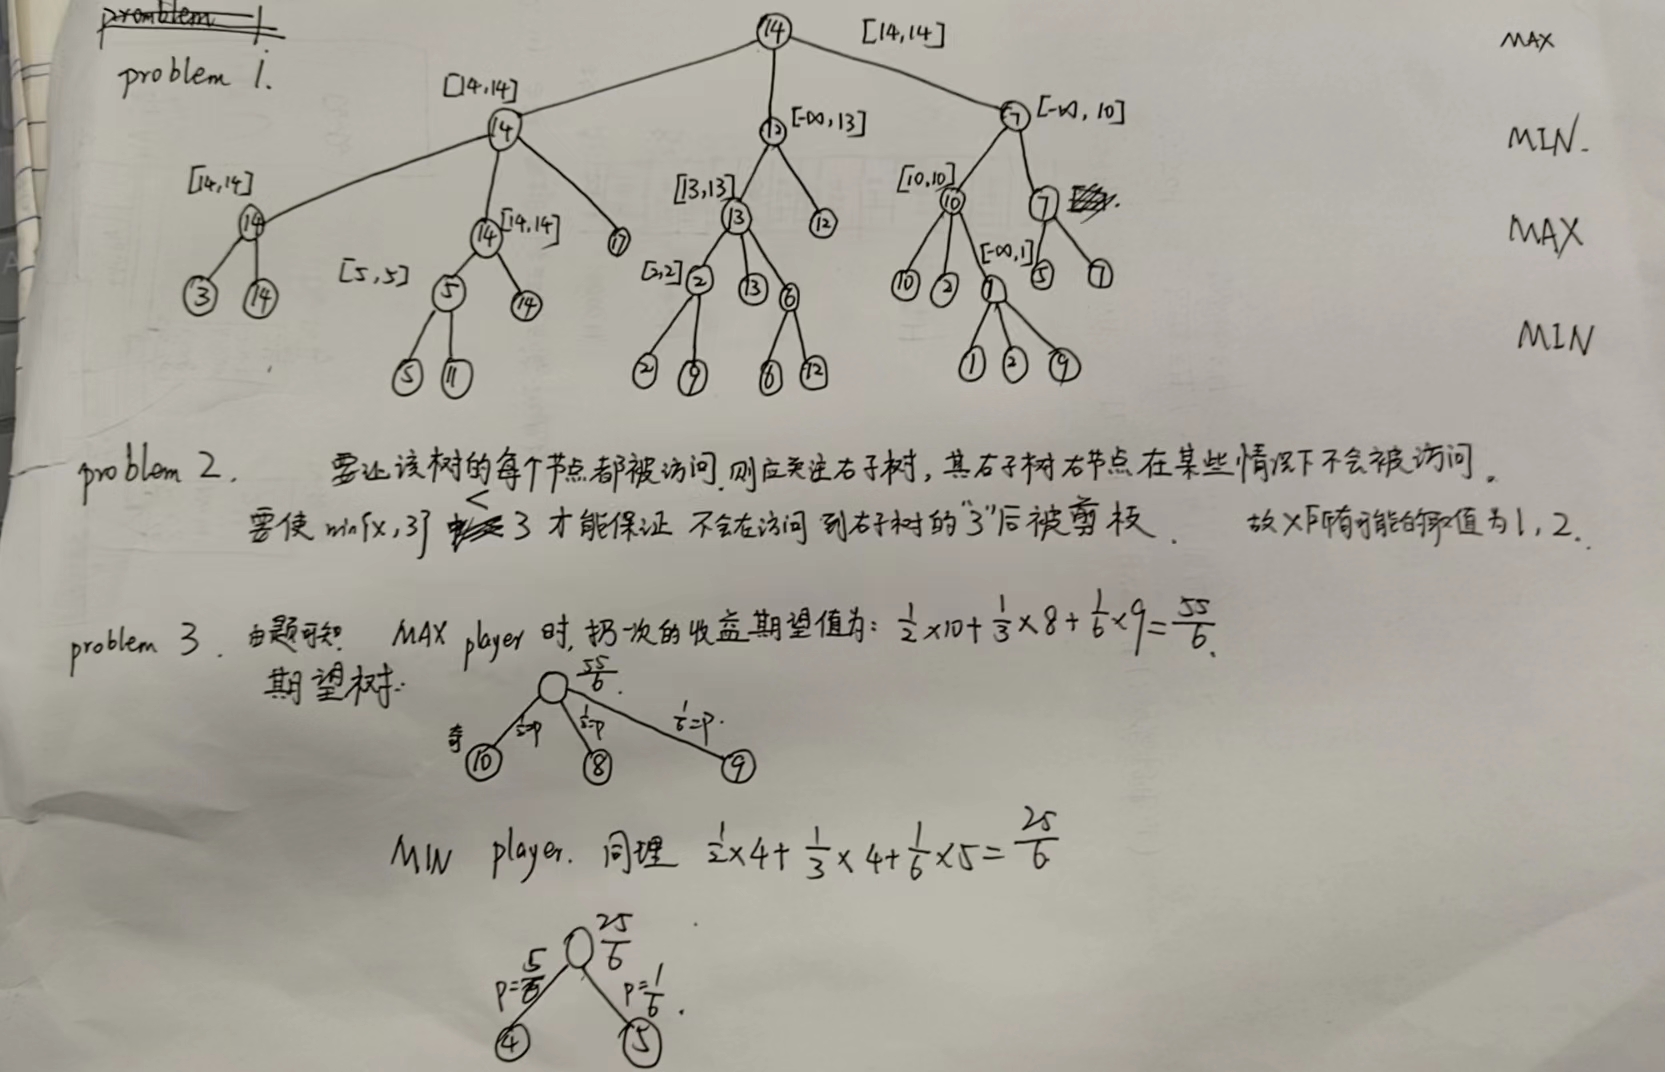 problem 1.
14 [14,14] MAX
[14,14] 14 12 [-∞,13] 7 [-∞,10] MIN.
[14,14] 14 14 [14,14] 17 [13,13] 13 12 [10,10] 10 7 MAX
3 14 [5,5] 5 14 [2,2] 2 13 6 10 2 [-∞,1] 1 5 7 MIN
5 11 2 9 6 12 1 2 9
problem 2. 要让该树的每个节点都被访问,则应关注右子树,其右子树右节点在某些情况下不会被访问.
要使 min{x,3} < 3 才能保证 不会在访问到右子树的"3"后被剪枝. 故x所有可能的取值为1,2.
problem 3. 由题可知. MAX player 时,扔一次的收益期望值为: 1/2×10+1/3×8+1/6×9=55/6.
期望树: 55/6.
奇 1/2=p 1/3=p 1/6=p.
10 8 9
MIN player. 同理 1/2×4+1/3×4+1/6×5=25/6
25/6
p=5/6 p=1/6.
4 5